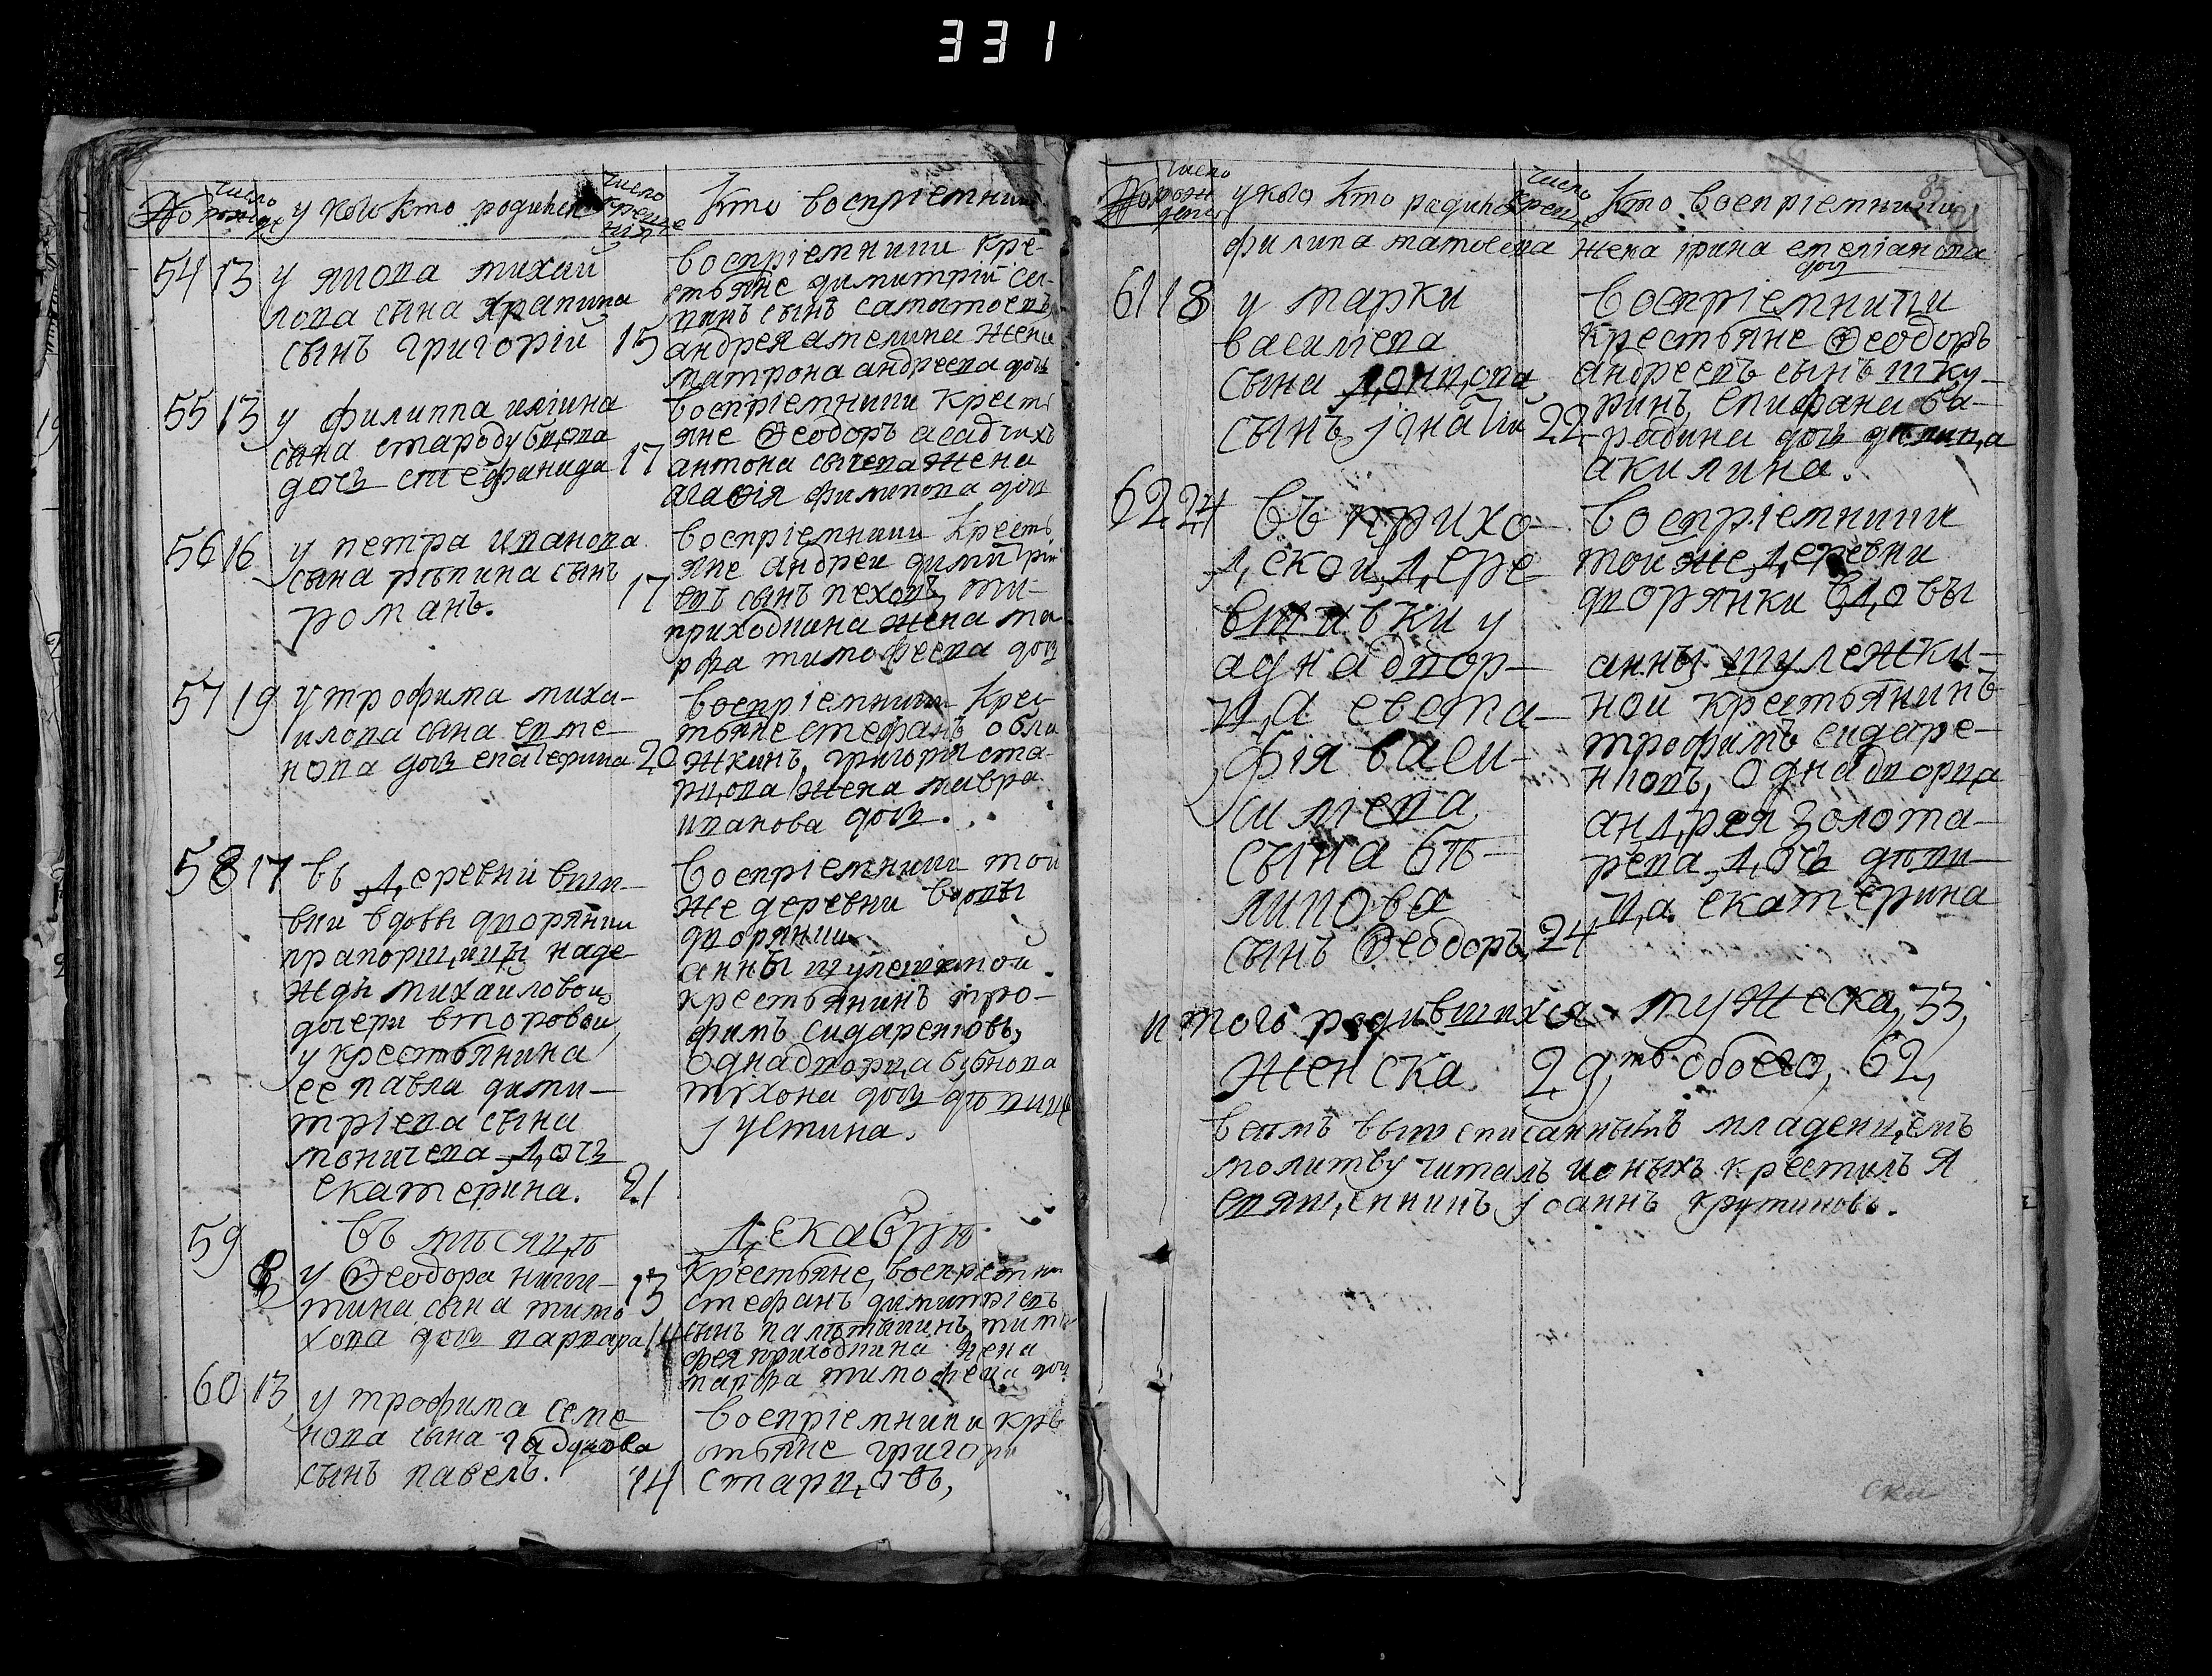 331
число
рожде
у кого кто родился
число
креще
нія
Кто воспріемники
54 13 у якова михаи
лова сына
сынъ григорій 15
воспріемники кре-
стьяне димитрій
сынъ
андрея жена
матрона андреева дочь
55 13 у филиппа иліина
сына стародубцова
дочь стефанида 17
воспріемники кресть
яне Ѳеодоръ асадчихъ
антона сычева жена
агаѳія филипова дочь
56 16 у петра иванова
сына репина сынъ
романъ. 17
воспріемники кресть
яне андреи димитрїи
евъ сынъ пеховъ, ти-
приходкина жена ма
рфа тимофеева дочь
57 19 у трофима миха-
илова сына
нова дочь екатерина 20
воспріемники крес
тьяне стефанъ
жкинъ, григорія ста-
рцова жена мавра
иванова дочь.
58 17 въ деревни вши-
вки вдовы дворянки
прапорщицы наде
жды михаиловои
дочери второвои
у крестьянина
ее павла дими-
тріева сына
моничева дочь
екатерина. 21
воспріемники тои
же деревни вдовы
дворянки
анны шулешкиной
крестьянинъ тро-
фимъ сидаренковъ,
однадворца бубнова
тихона дочь девица
устина.
59 въ месяце декабрю
8 у Ѳеодора ники-
тина сына
дочь варвара 14
13
крестьяне, воспріемни
стефанъ димитріевъ
сынъ тимо-
фея приходкина жена
марфа тимофеева дочь
60 13 у трофима семе-
нова сына
сынъ павелъ. 14
воспріемники кре
стьяне григори
старцовъ,
число
рож
дения
у кого кто радился
число
креще
Кто воспріемники
85
филипа матвеева жена ірина емеліанова
дочь
61 18 у марки
василіева
сына донцова
сынъ ігнатіи 22
воспріемники
крестьяне Ѳеодоръ
андреевъ сынъ шку-
ринъ, епифана ба-
рабина дочь девица
акилина.
62 24 въ прихо-
дскои дере
вшивки у
аднадвор-
ца евста-
фія васи-
силіева
сына бѣ-
ликова
сынъ Ѳеодоръ 24
воспріемники
тои же деревни
дворянки вдовы
анны шулежки-
нои крестьянинъ
трофимъ сидаре-
нковъ, однадворца
андрея золота-
рева дочь деви-
ца екатерина
итого родившихся мужеска, 33,
женска 29,ть обоего, 62,
всемъ вышеписаннымъ младенцемъ
молитву читалъ и оныхъ крестилъ я
священникъ іоаннъ крутиковъ.